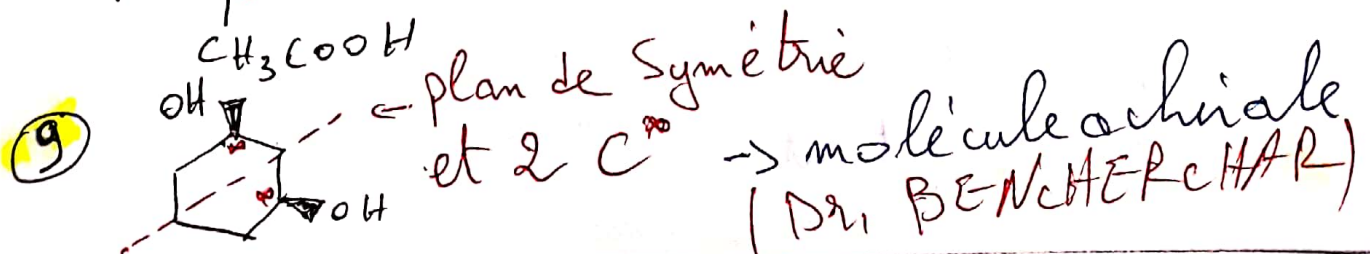 CH3COOH
OH
← plan de Symétrie
9
et 2 C* → molécule achirale
OH
(Dr. BENCHERCHAR)